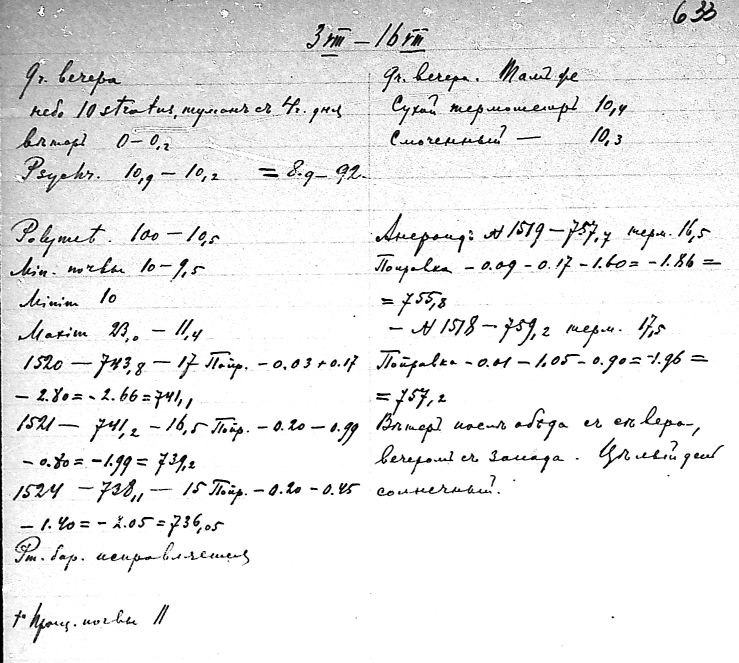 633
3 VIII – 16 VIII
9ч. вечера
небо 10 stratus, туманъ съ 4ч. дня
вѣтеръ 0–0,2
Psychr. 10,9 – 10,2 = 8.9 – 92.
Polymet. 100 – 10,5
Min. почвы 10 – 9,5
Minim 10
Maxim 23,0 – 11,4
1520 – 743,8 – 17 Попр. – 0.03 + 0.17
– 2.80 = – 2.66 = 741,1
1521 – 741,2 – 16,5 Попр. – 0.20 – 0.99
– 0.80 = – 1.99 = 739,2
1524 – 738,1 – 15 Попр. – 0.20 – 0.45
– 1.40 = – 2.05 = 736,05
Рт. бар. исправляется
t° почвы 11
9ч. вечера.
Сухой термометръ 10,4
Смоченный — 10,3
Анероид: N 1519 – 757,7 терм. 16,5
Поправка – 0.09 – 0.17 – 1.60 = – 1.86 =
= 755,8
– N 1518 – 759,2 терм. 17,5
Поправка – 0.01 – 1.05 – 0.90 = – 1.96 =
= 757,2
Вѣтеръ послѣ обѣда съ сѣвера,
вечеромъ съ запада. Цѣлый день
солнечный.